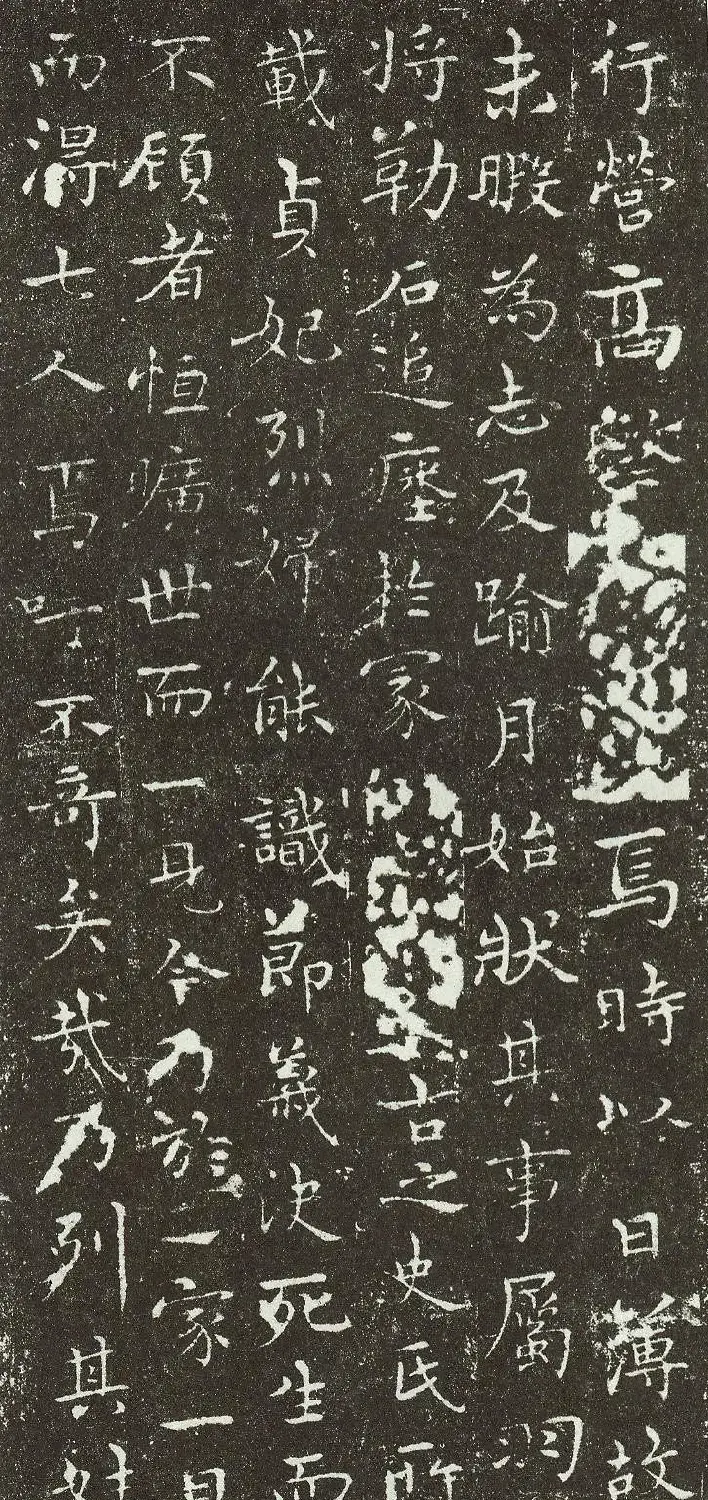 行營高焉時以日薄故
未暇為志及踰月始狀其事屬羽
將勒石追瘞於冢古之史氏所
載貞妃烈婦能識節義決死生而
不顧者恒曠世而一見今乃於一家一旦
而得七人焉吁不奇矣哉乃列其